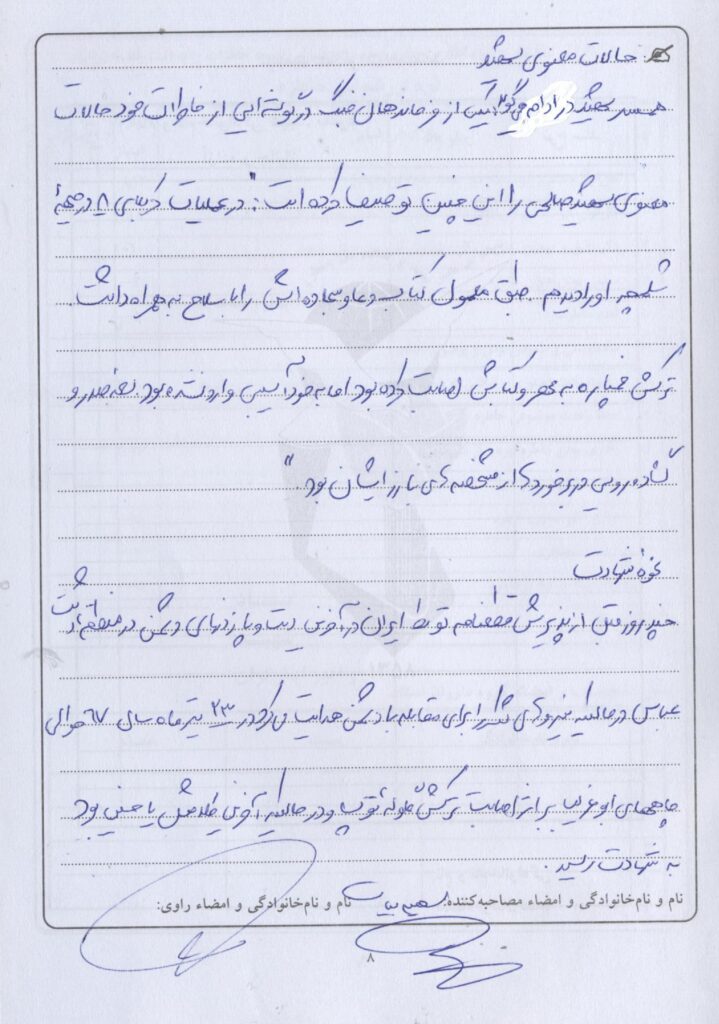 حالات معنوی شهید
همسر شهید در ادامه می‌گوید یکی از فرماندهان جنگ در نوشته‌ایی از خاطرات خود حالات
معنوی شهید صالحی را این چنین توصیف کرده است: "در عملیات کربلای ۸ در
شلمچه او را دیدم. طبق معمول کتاب دعا و سجاده‌اش را با سلاح به همراه داشت.
ترکش خمپاره به مهر و کتابش اصابت کرده بود اما به خود آسیبی وارد نشده بود. سعه صدر و
گشاده‌رویی در برخوردها از مشخصه‌های بارز ایشان بود."
نحوه شهادت
چند روز قبل از پذیرش قطعنامه توسط ایران در آخرین دست و پا زدنهای دشمن در منطقه
عباس در حالیکه نیروهای لشکر را برای مقابله با دشمن هدایت می‌کرد در ۲۳ تیر ماه سال ۶۷ حوالی
چاههای ابوغریب بر اثر اصابت ترکش گلوله توپ و در حالیکه آخرین کلامش یا حسین بود
به شهادت رسید.
نام و نام‌خانوادگی و امضاء مصاحبه‌کننده: نام و نام‌خانوادگی و امضاء راوی:
۸